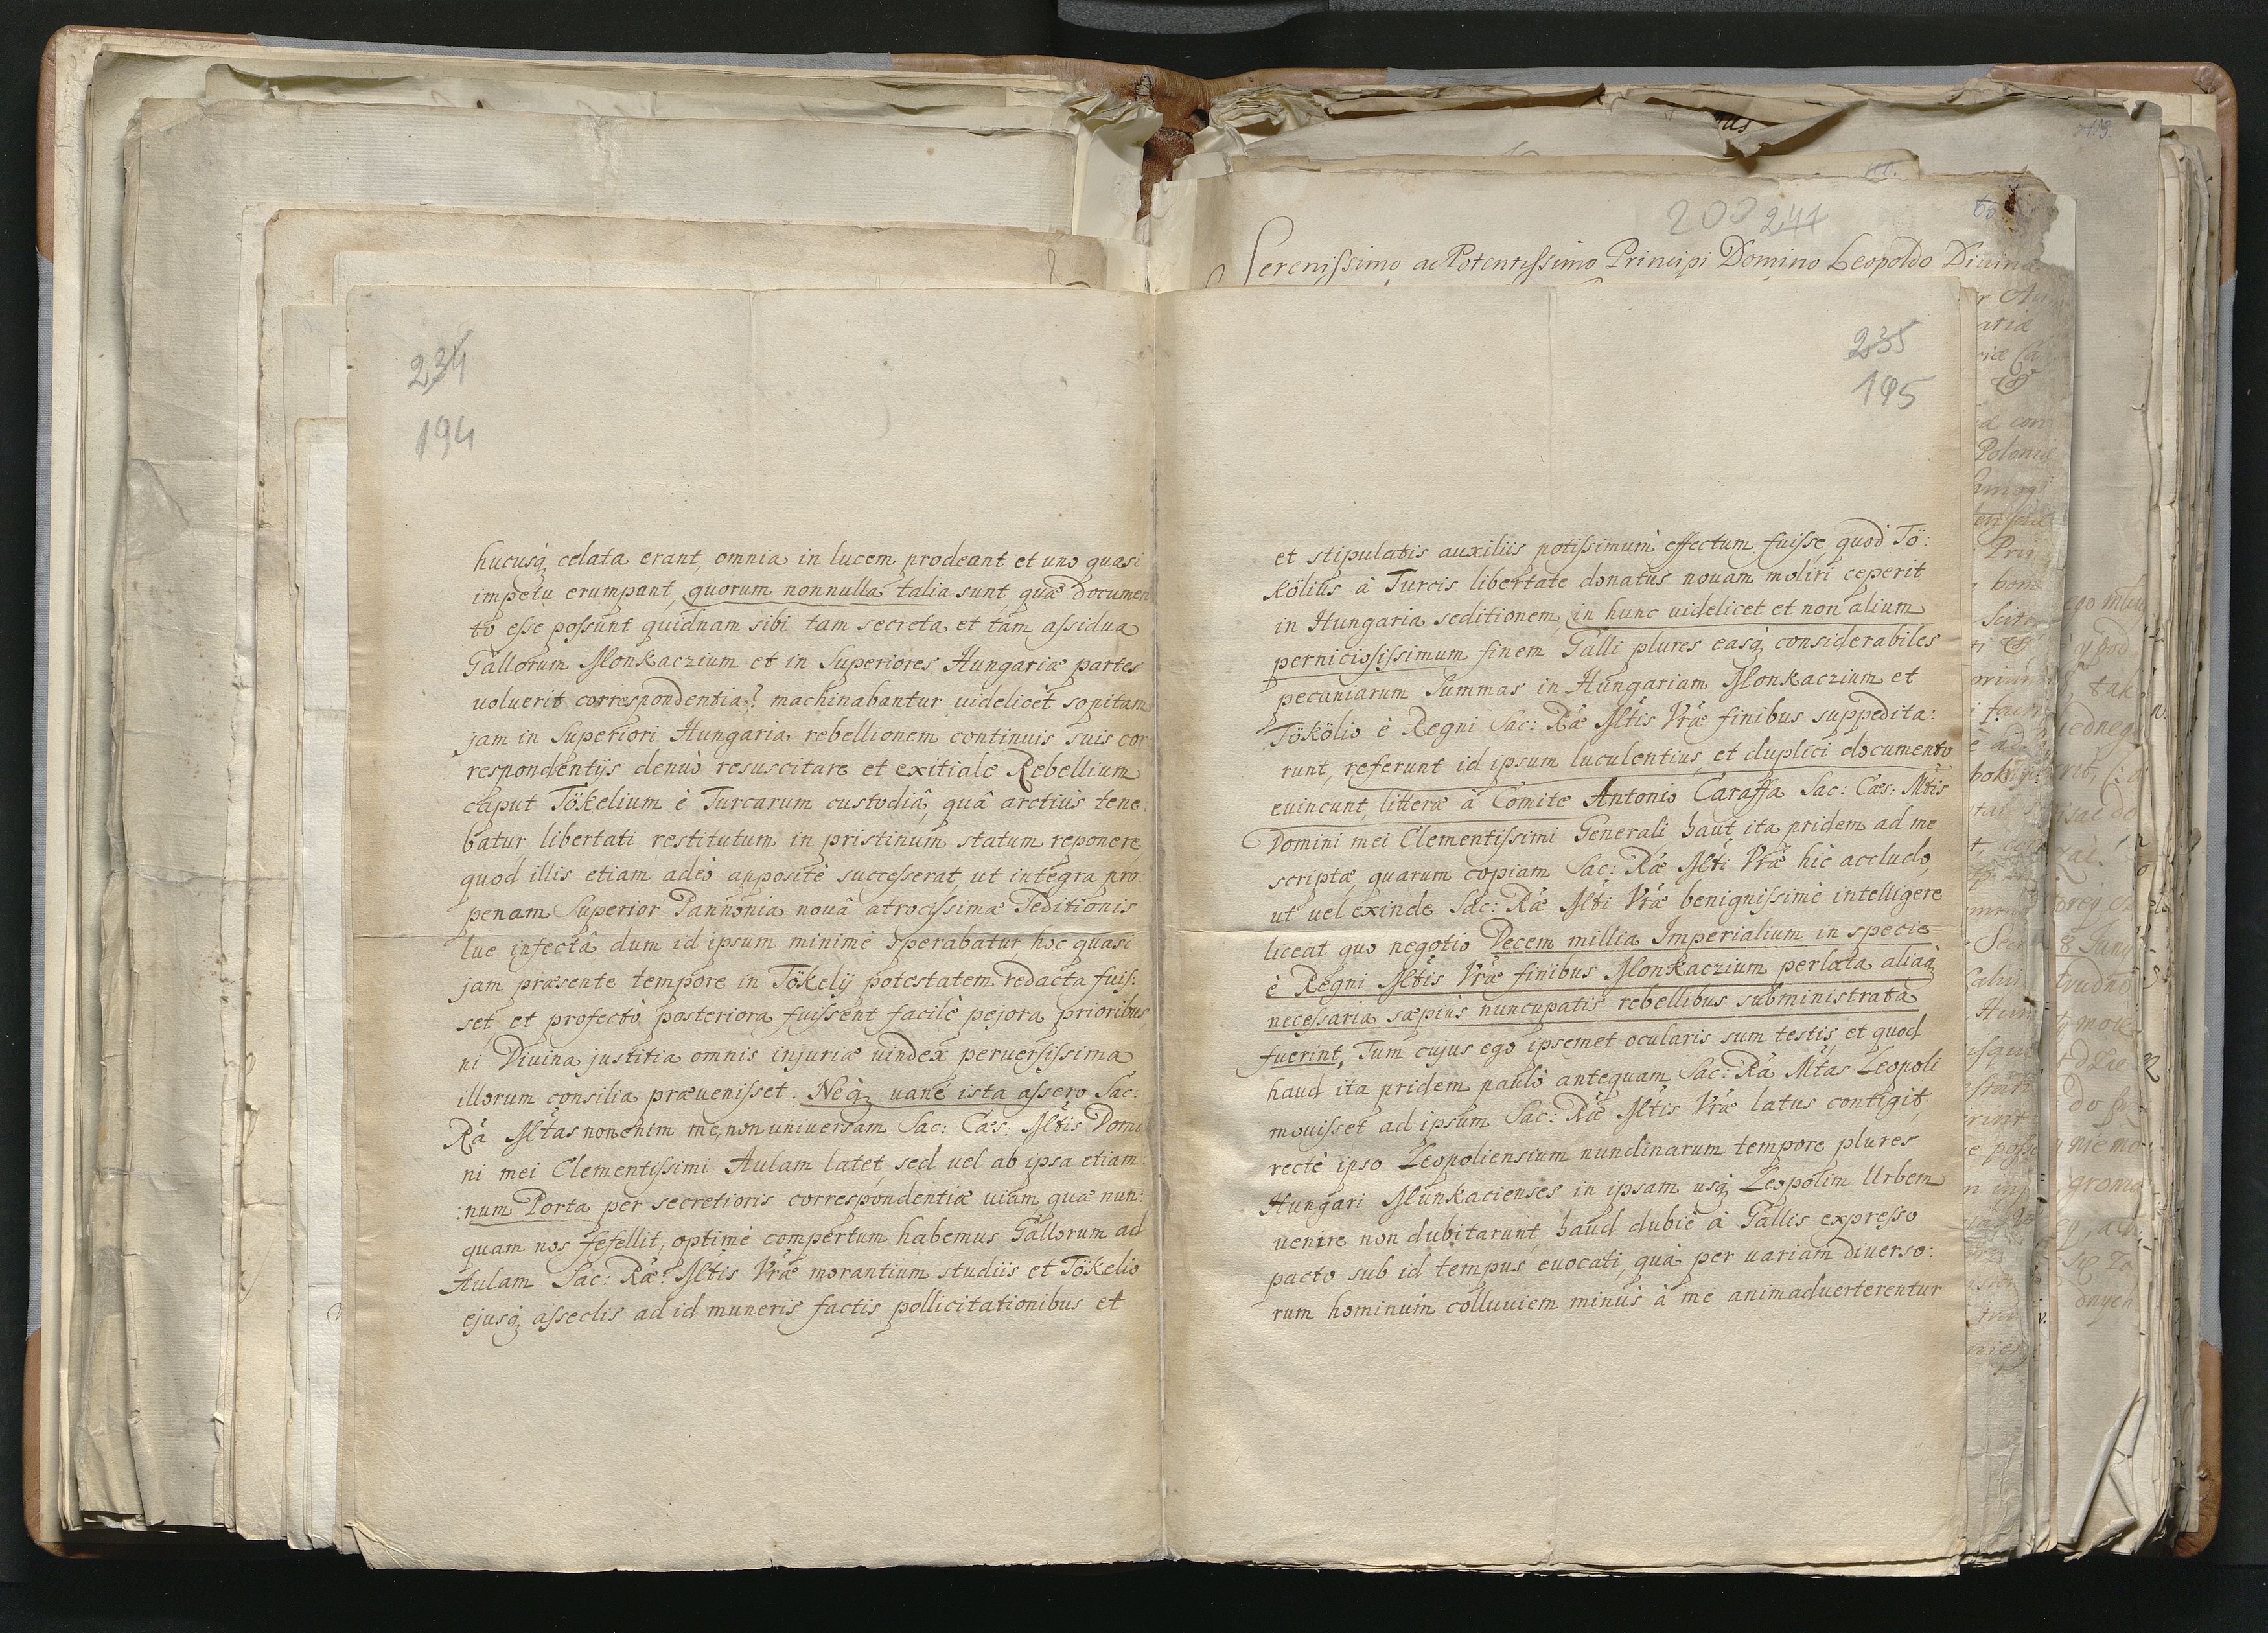 234
194
hucusq́ celata erant, omnia in lucem prodeant et uno quasi
impetu erumpant, quorum nonnulla talia sunt, quæ documen
to esse possunt quidnam sibi tam secreta et tam assidua
Gallorum Monkaczium et in Superiores Hungariæ partes
voluerit correspondentia? machinabantur videlicet sopitam
jam in Superiori Hungaria rebellionem continuis suis cor
respondentijs denuò resuscitare et exitiale Rebellium
caput Tökelium è Turcarum custodiâ, quâ arctiùs tene:
batur libertati restitutum in pristinum statum reponere,
quod illis etiam adeò appositè successerat, ut integra pro:
penam Superior Pannonia novâ atrocissimæ Seditionis
lue infectâ dum id ipsum minimè sperabatur hoc quasi
jam præsente tempore in Tökelij potestatem redacta fuis:
set, et profectò posteriora fuissent facilè pejora prioribus
ni Divina justitia omnis injuriæ vindex perversissima
illorum consilia prævenisset. Neq́ vanè ista assero Sac:
Rã Mtas non enim me, non universam Sac: Cæs: Mtis Domi
ni mei Clementissimi Aulam latet, sed vel ab ipsa etiam
:num Porta per secretioris correspondentiæ viam quæ nun:
quam nos fefellit, optimè compertum habemus Gallorum ad
Aulam Sac: Ræ: Mtis Vræ morantium studiis et Tökelio
ejusq́ asseclis ad id muneris factis pollicitationibus et
200 241
Serenissimo ac Potentissimo Principi Domino Leopoldo Divina
235
195
et stipulatis auxiliis potissimùm effectum fuisse, quòd Tö:
kölius à Turcis libertate donatus novam moliri ceperit
in Hungaria seditionem, in hunc videlicet et non alium
perniciosissimum finem Galli plures easq́ considerabiles
pecuniarum Summas in Hungariam Monkaczium et
Tökölio è Regni Sac: Ræ Mtis Vræ finibus suppedita:
runt, referunt id ipsum luculentius, et duplici documento
evincunt, litteræ à Comite Antonio Caraffa Sac: Cæs: Mtis
Domini mei Clementissimi Generali haut ita pridem ad me
scriptæ, quarum copiam Sac: Ræ Mti Vræ hìc accludo,
ut vel exinde Sac: Ræ Mti Vræ benignissimè intelligere
liceat quo negotio Decem millia Imperialium in specie
è Regni Mtis Vræ finibus Monkaczium perlata aliaq́
necessaria sæpiùs nuncupatis rebellibus subministrata
fuerint, Tum cujus ego ipsemet ocularis sum testis, et quod
haud ita pridem paulò antequam Sac: Rã Mtas Leopoli
movisset ad ipsum Sac: Ræ Mtis Vræ latus contigit,
rectè ipso Leopoliensium nundinarum tempore plures
Hungari Munkacienses in ipsam usq́ Leopolim Urbem
venire non dubitarunt, haud dubiè à Gallis expresso
pacto sub id tempus evocati, quà per variam diverso:
rum hominum colluviem minùs à me animadverterentur